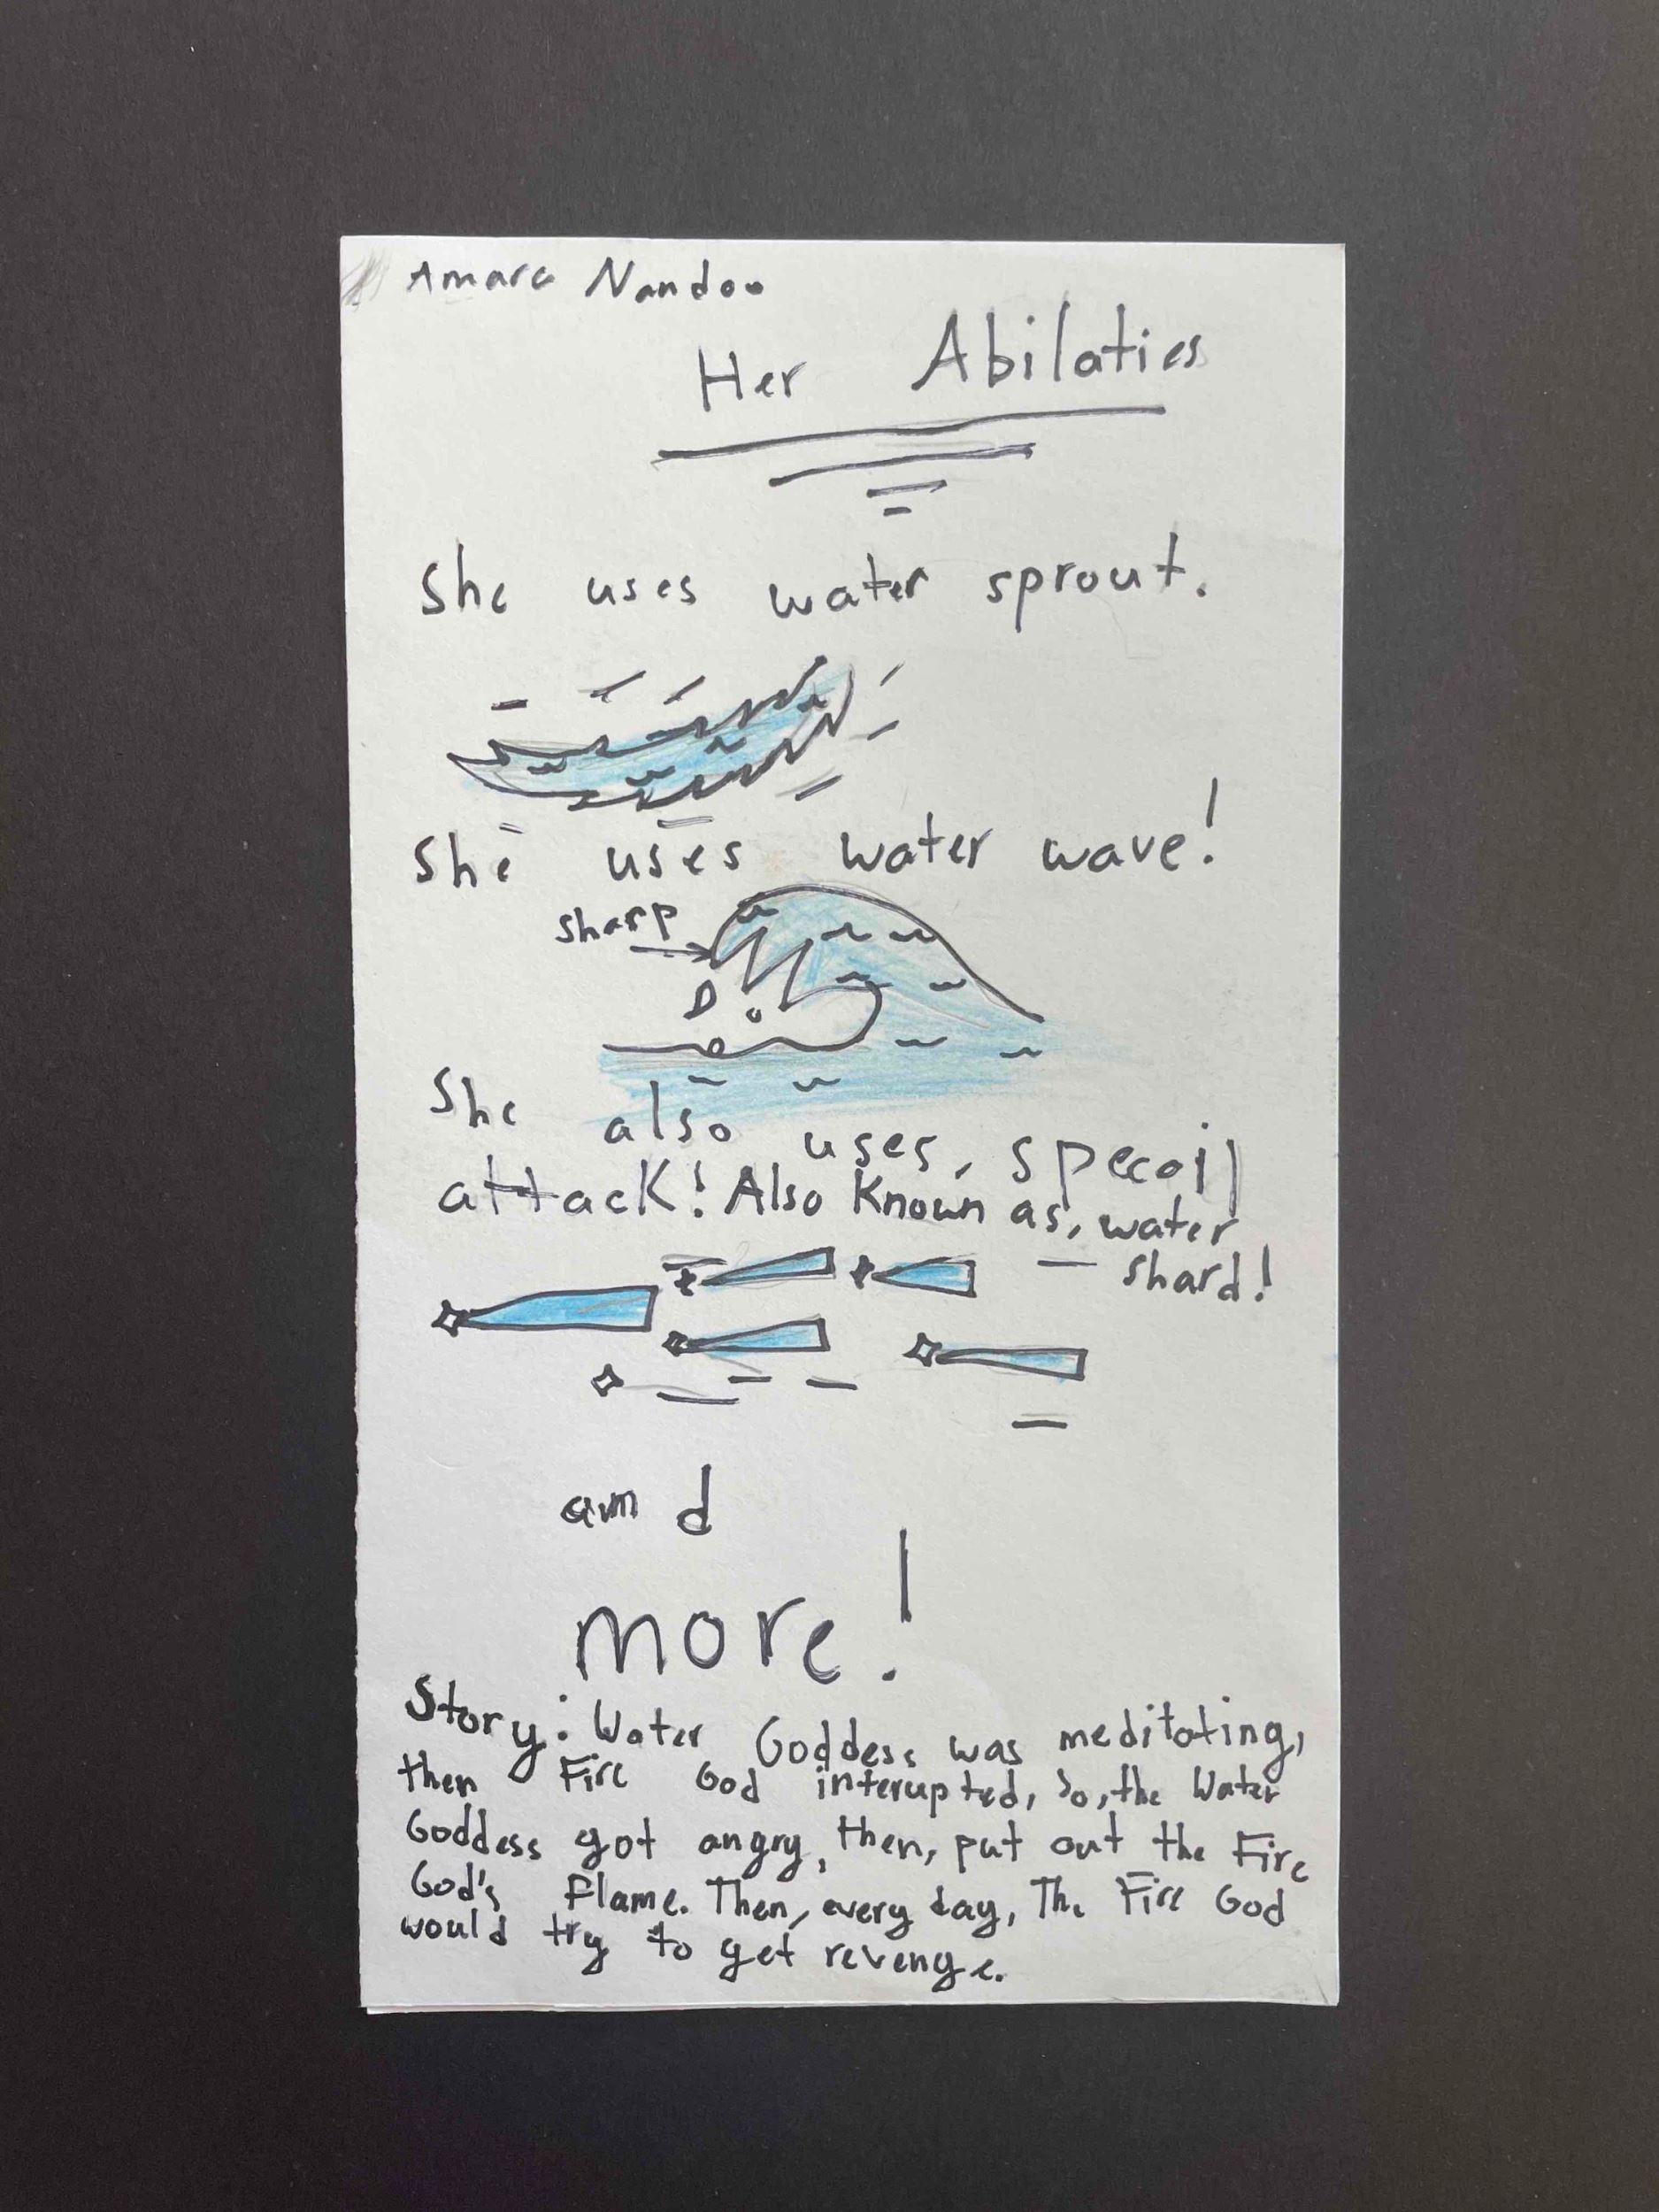 Amara Nandoo
Her Abilaties
She uses water sprout.
She uses water wave!
sharp
She also uses, specoil
attack! Also Known as, water
shard!
amd
more!
Story: Water Goddess was meditating,
then Fire God interupted, So, the Water
Goddess got angry, then, put out the Fire
God's Flame. Then, every day, The Fire God
would try to get revenge.